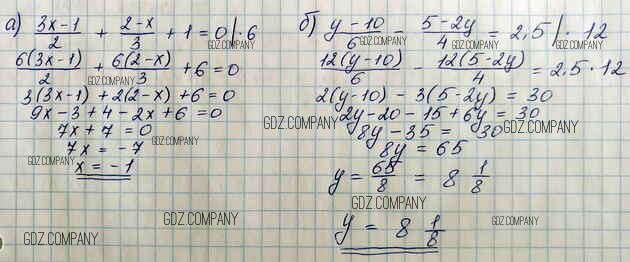 а) (3x-1)/2 + (2-x)/3 + 1 = 0 |·6
6(3x-1)/2 + 6(2-x)/3 + 6 = 0
3(3x-1) + 2(2-x) + 6 = 0
9x - 3 + 4 - 2x + 6 = 0
7x + 7 = 0
7x = -7
x = -1
б) (y-10)/6 - (5-2y)/4 = 2,5 |· 12
12(y-10)/6 - 12(5-2y)/4 = 2,5·12
2(y-10) - 3(5-2y) = 30
2y - 20 - 15 + 6y = 30
8y - 35 = 30
8y = 65
y = 65/8 = 8 1/8
y = 8 1/8
GDZ.COMPANY
GDZ.COMPANY
GDZ.COMPANY
GDZ.COMPANY
GDZ.COMPANY
GDZ.COMPANY
GDZ.COMPANY
GDZ.COMPANY
GDZ.COMPANY
GDZ.COMPANY
GDZ.COMPANY
GDZ.COMPANY
GDZ.COMPANY
GDZ.COMPANY